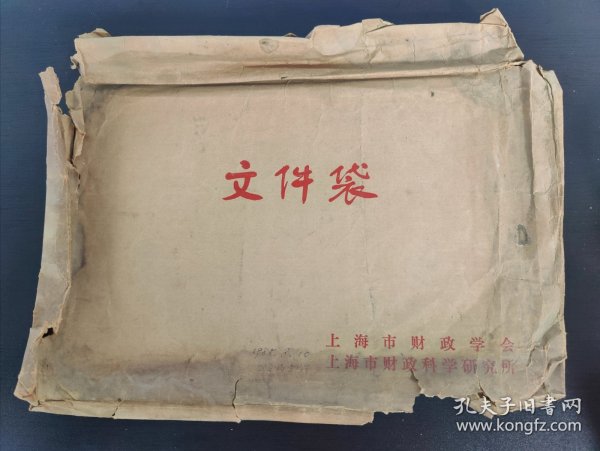 文件袋
上海市财政学会
上海市财政科学研究所
孔夫子旧书网
www.kongfz.com